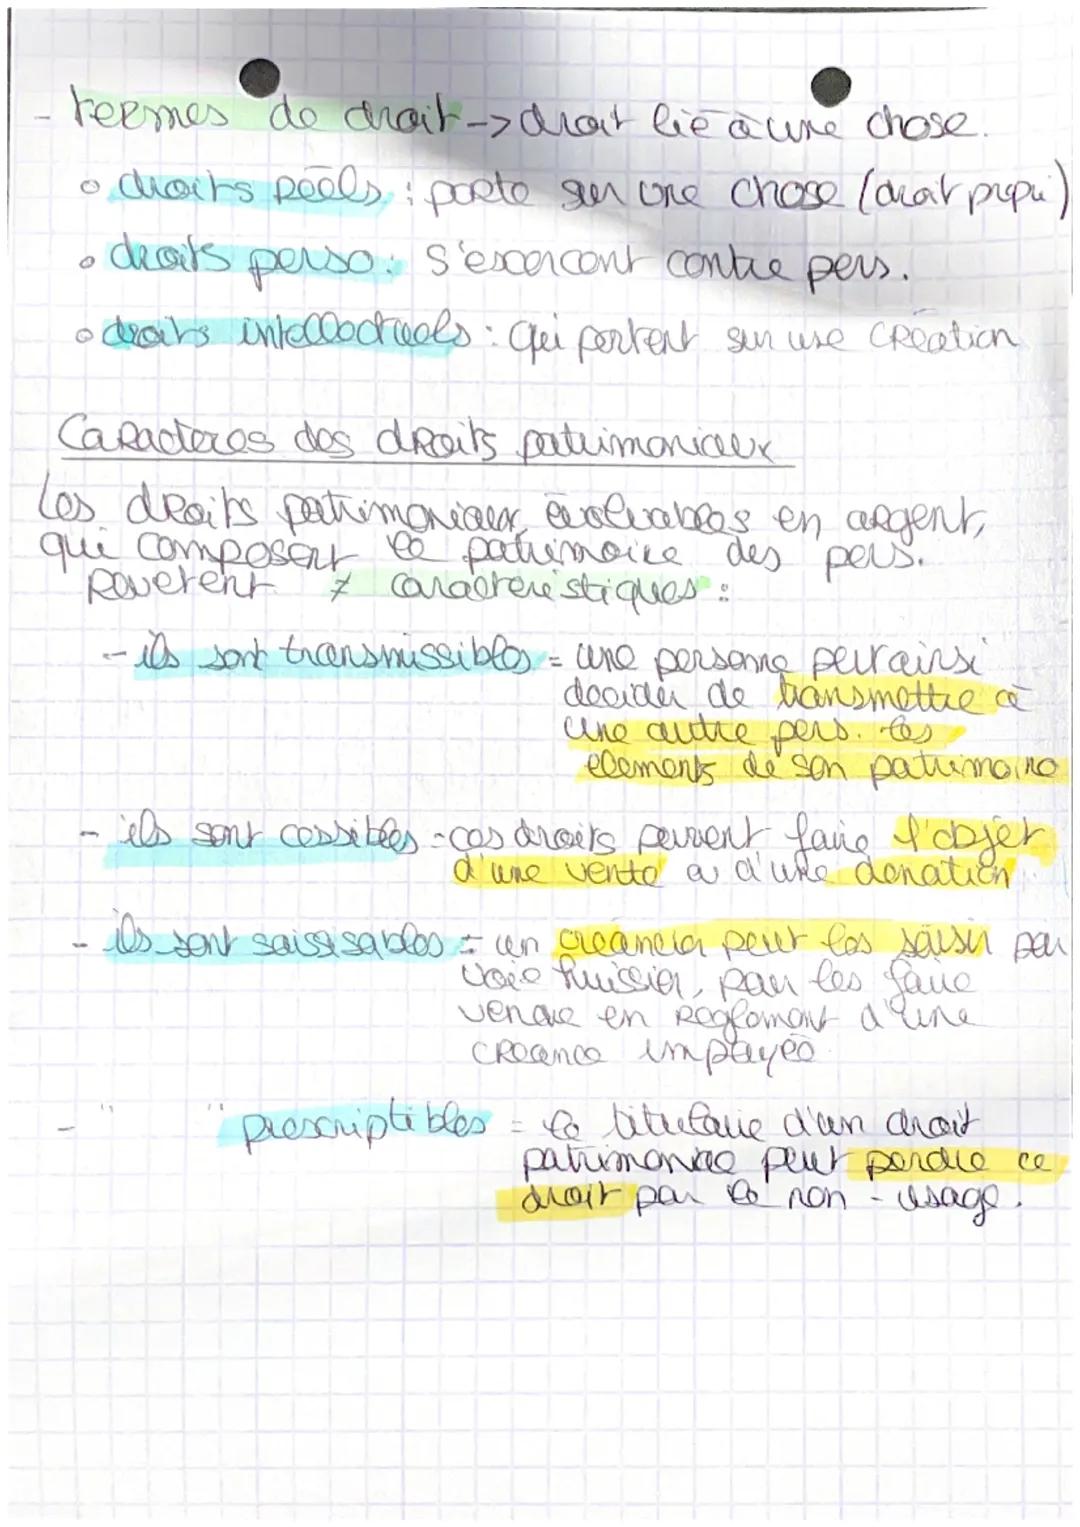 - termes de droit -> droit lié à une chose.
o droits réels : porte sur une chose (droit propri)
o droits perso : s'exercent contre pers.
o droits intellectuels : qui portent sur une création
Caractères des droits patrimoniaux
Les droits patrimoniaux, évaluables en argent,
qui composent le patrimoine des pers.
revêtent ≠ caractéristiques :
- ils sont transmissibles = une personne peut ainsi
décider de transmettre à
une autre pers. les
elements de son patrimoine
- ils sont cessibles = ces droits peuvent faire l'objet
d'une vente ou d'une donation
- ils sont saisissables = un créancier peut les saisir par
voie huissier, pour les faire
vendre en règlement d'une
créance impayée
- " " prescriptibles = le titulaire d'un droit
patrimoniae peut perdre ce
droit par le non - usage.